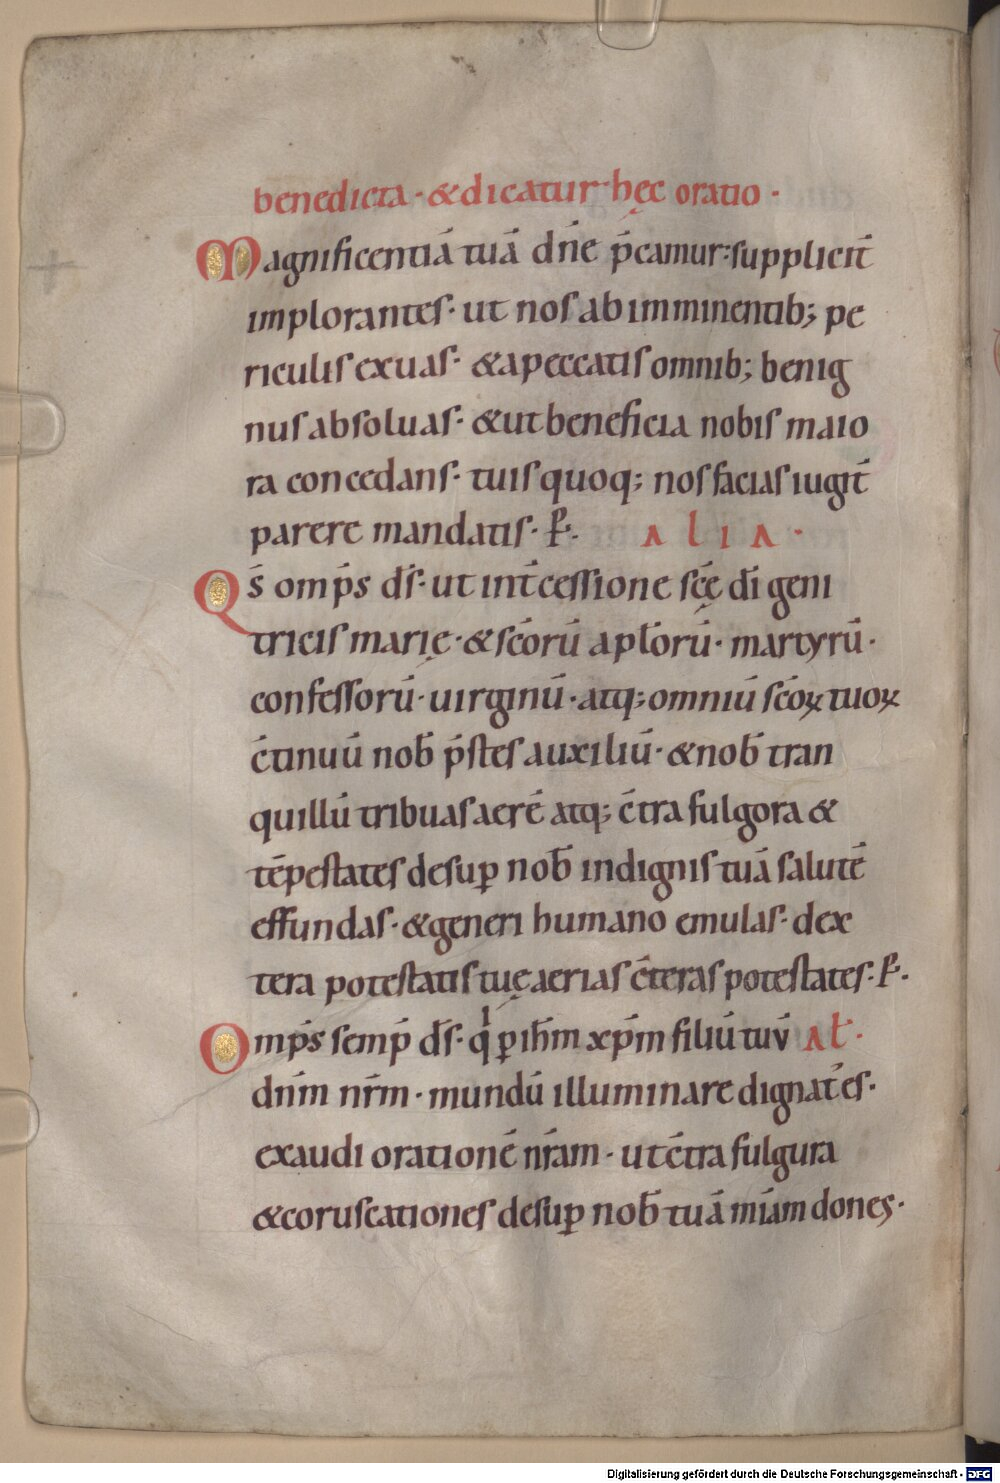 benedicta · & dicatur hęc oratio ·
Magnificentiā tuā dn̄e p̄camur: supplicit̄
implorantes · ut nos ab imminentib; pe
riculis exuas · & a peccatis omnib; benig
nus absoluas · & ut beneficia nobis maio
ra concedans · tuis quoq; nos facias iugit̄
parere mandatis · P̄ · ALIA ·
Qs̄ omp̄s ds̄ · ut int̄cessione scę̄ dī geni
tricis marię · & scōrū apłorū · martyrū ·
confessorū · uirginū · atq; omniū scōꝝ tuoꝝ
c̄tinuū nob̄ p̄stes auxiliū · & nob̄ tran
quillū tribuas aerē atq; c̄tra fulgora &
tēpestates desuꝑ nob̄ indignis tuā salutē
effundas · & generi humano emulas · dex
tera potestatis tuę aerias c̄teras potestates · P̄ ·
Omp̄s semp̄ ds̄ · qͥ ꝑ ihm̄ xp̄m filiū tuū AŁ ·
dn̄m nr̄m · mundū illuminare dignat̄es ·
exaudi orationē nr̄am · ut c̄tra fulgura
& coruscationes desuꝑ nob̄ tuā mīam dones ·
Digitalisierung gefördert durch die Deutsche Forschungsgemeinschaft - DFG